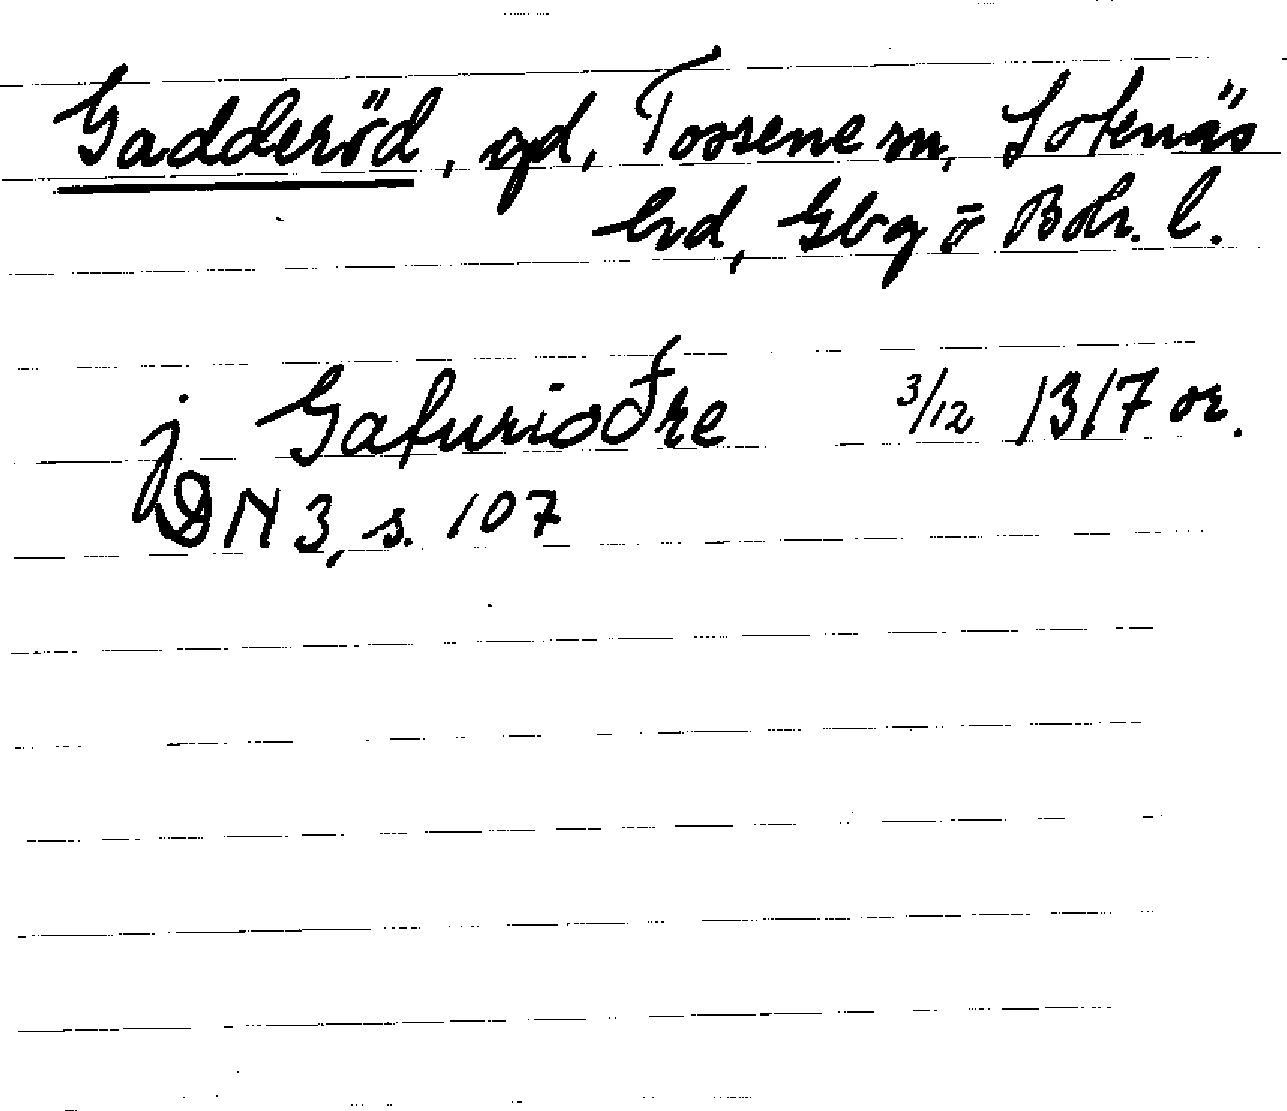 Gadderöd, gd, Tossene sn, Sotenäs
hd, Gbg o Boh. l.
j Gafuriodðre 3/12 1317 or.
DN 3, s. 107